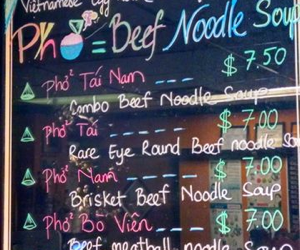 Vietnamese Egg
Phở = Beef Noodle Soup
Phở Tái Nam --- $7.50
Combo Beef Noodle Soup
Phở Tái ----- $7.00
Rare Eye Round Beef noodle So
Phở Nam ---- $7.00
Brisket Beef Noodle Soup
Phở Bò Viên --- $7.00
Beef meatball noodle Soup